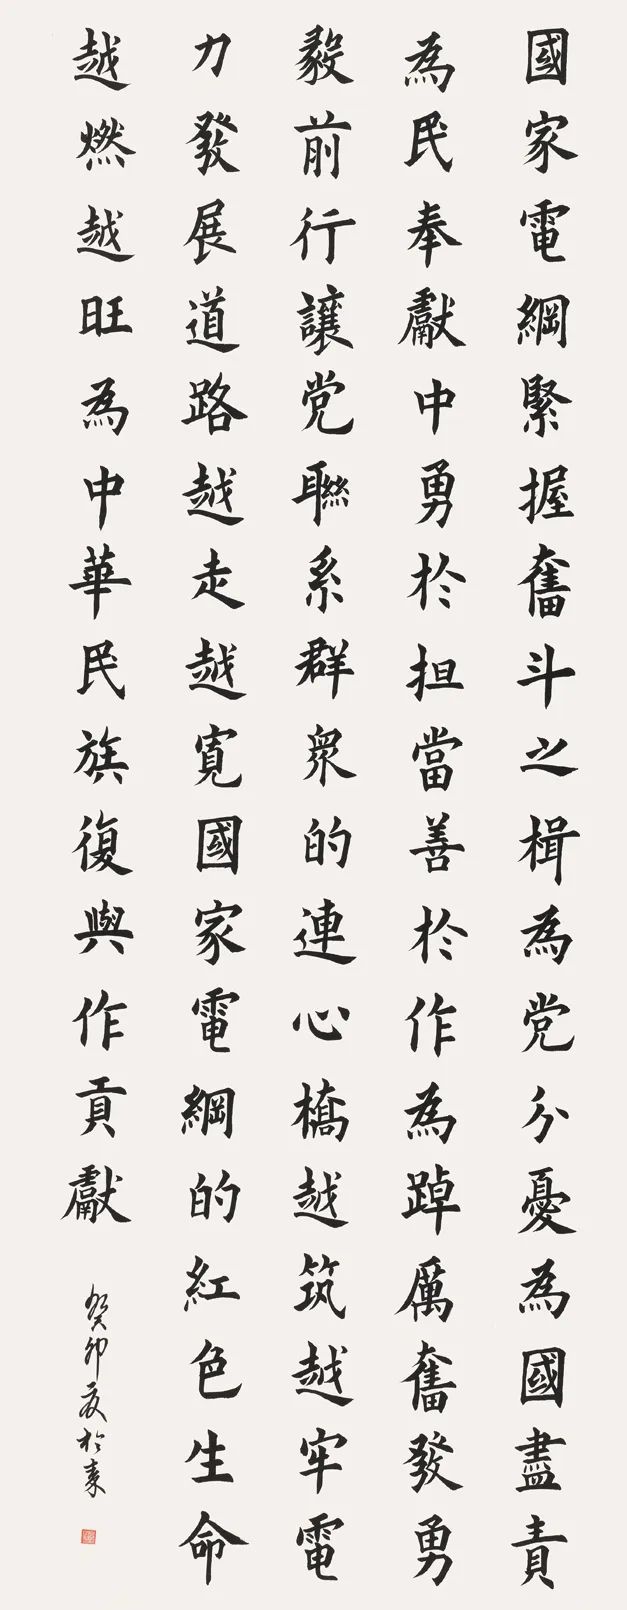 國家電網緊握奮斗之楫為党分憂為國盡責
為民奉獻中勇於担當善於作為踔厲奮發勇
毅前行讓党聯系群衆的連心橋越筑越牢電
力發展道路越走越寬國家電網的紅色生命
越燃越旺為中華民族復興作貢獻
癸卯夏於